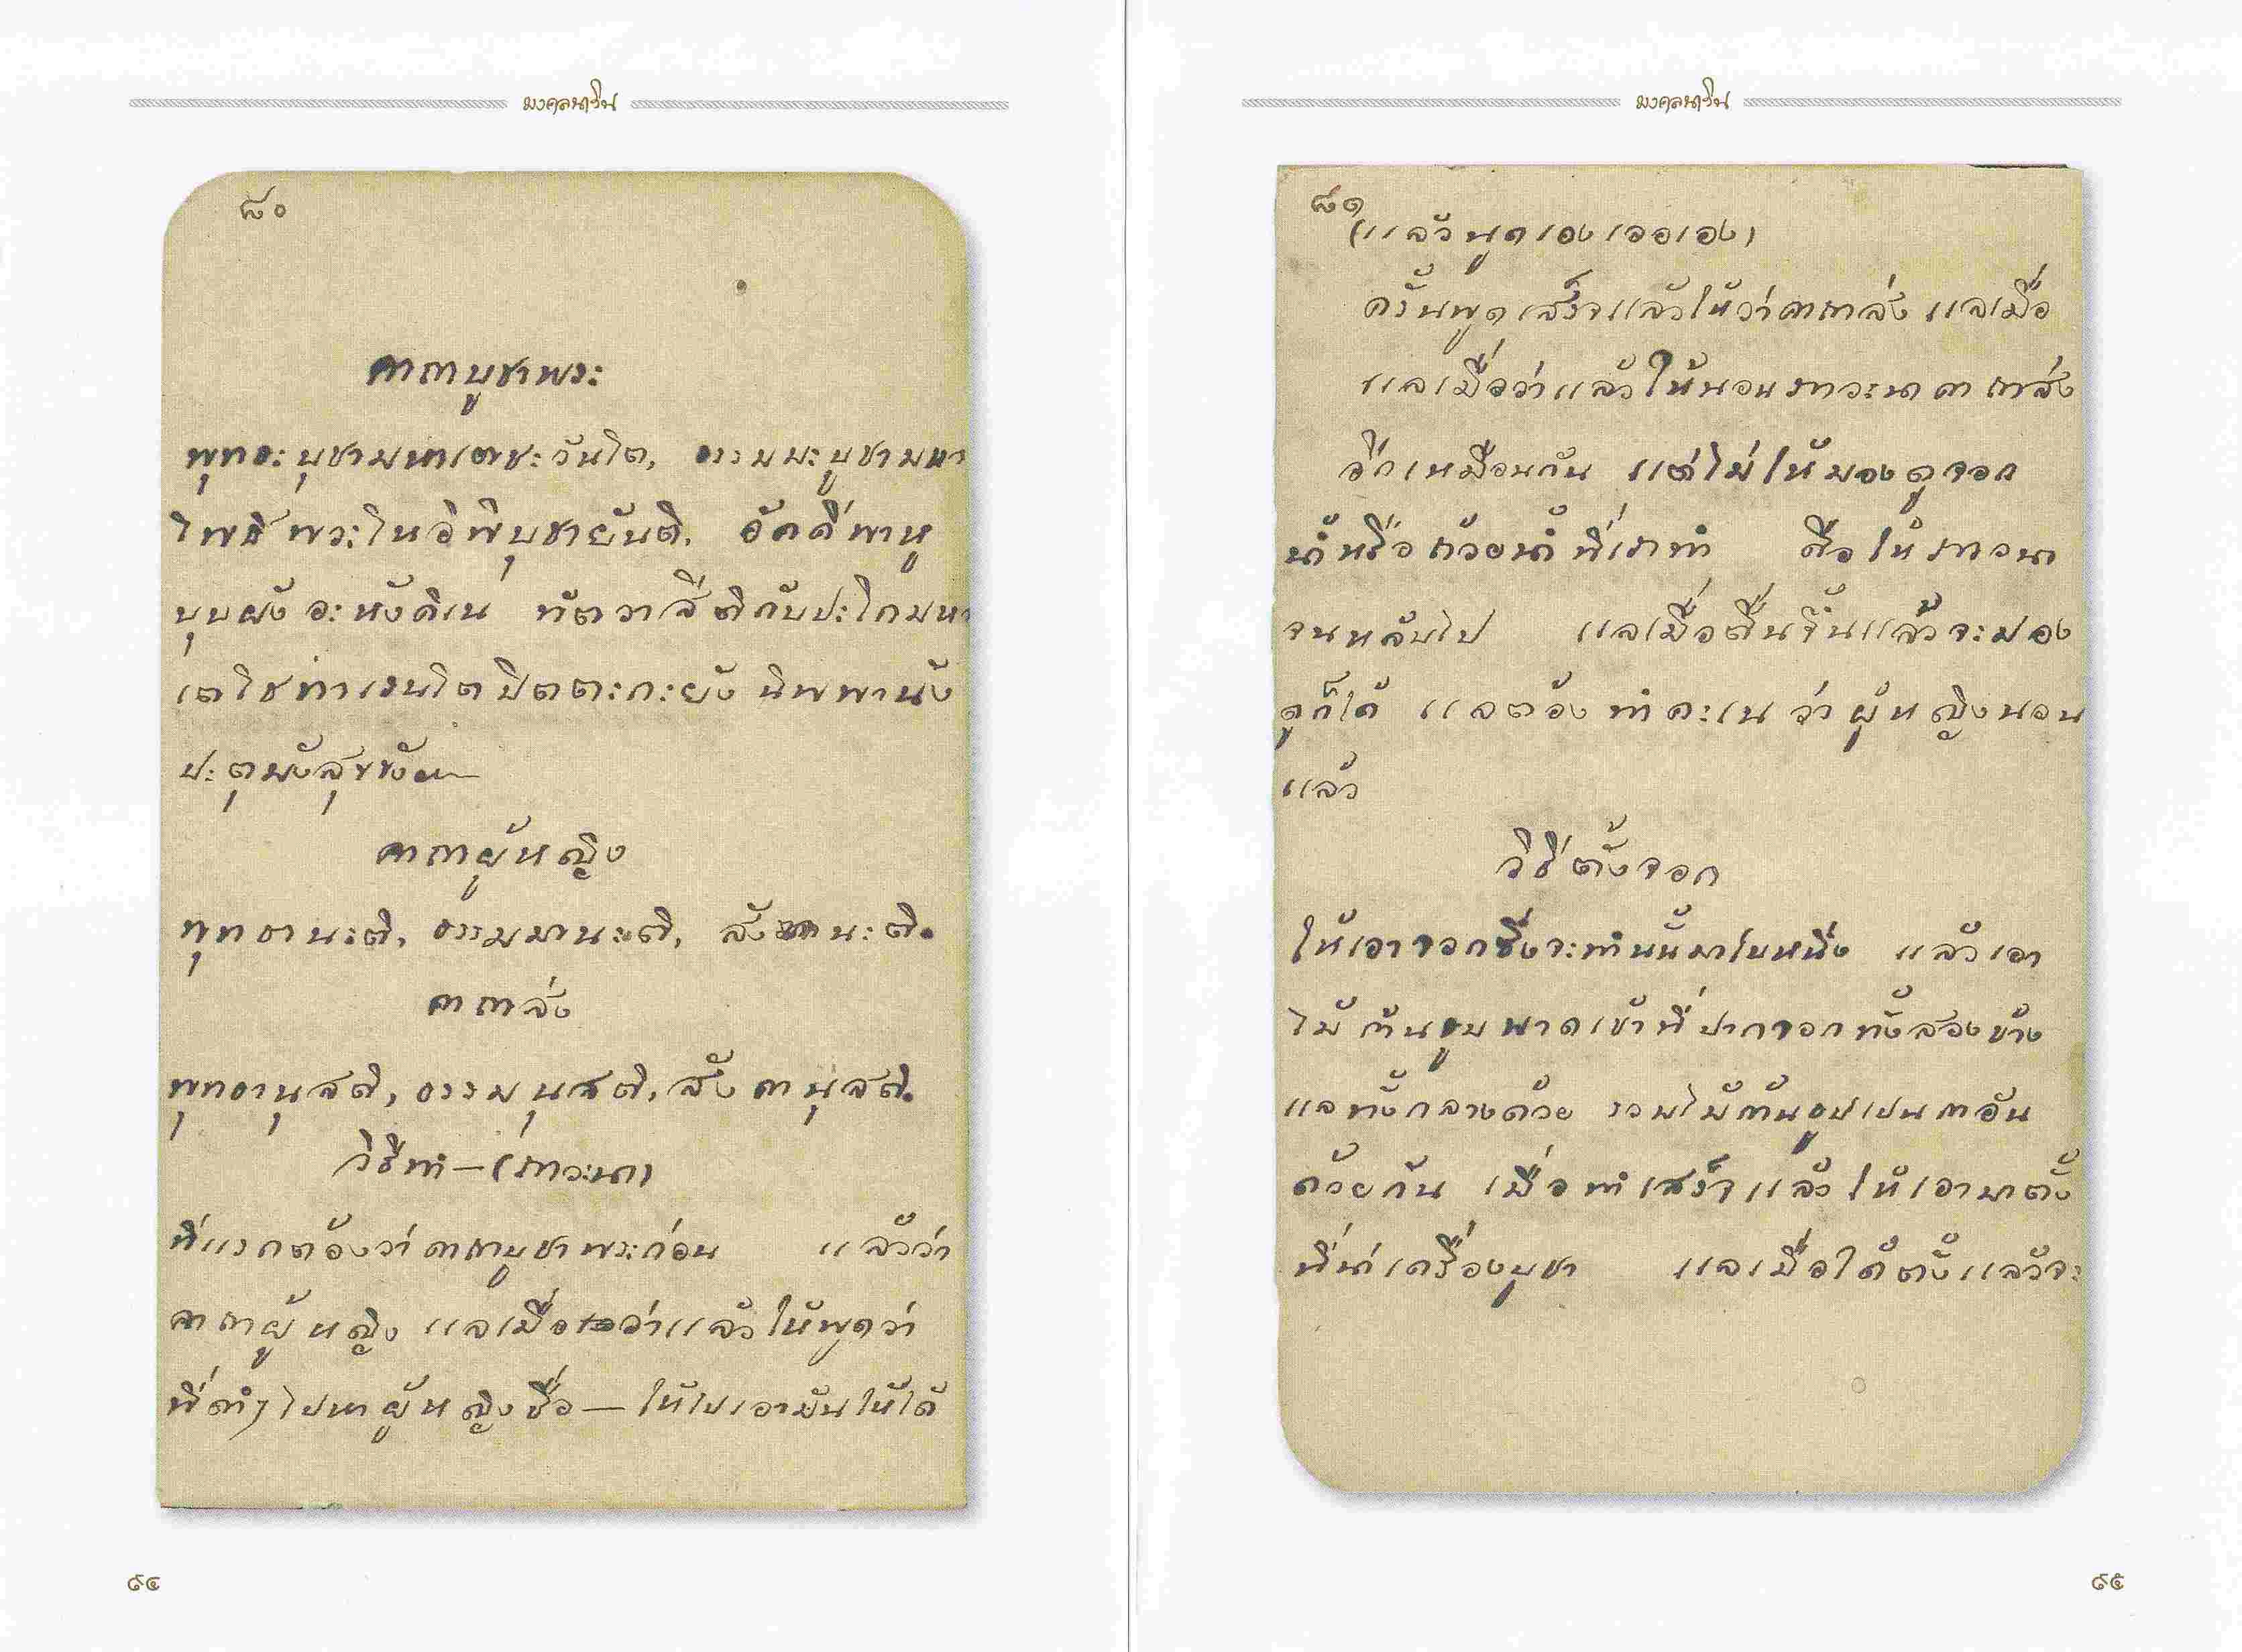 มงคลนาวิน
๘๐
คาถาบูชาพระ
พุทธะบุชามหาเตชะวันโต, ธรรมมะบูชามหา
โพธิพระโนอิพิบุชายันติ, อัคคีพาหู
บุบผัง อะหังคิเน ทัตวาสีติกับปะโกมหา
เตโชทำเรนโตปิตตะกะยัง นิพพานัง
ปะตุมังสุขขัง
คาถาผู้หญิง
พุทธานะติ, ธรรมมานะติ, สังฆานะติ.
คาถาส่ง
พุทธานุสติ, ธรรมนุสติ, สังฆานุสติ.
วิธีทำ—(ภาวะนา)
ที่แรกต้องว่าคาถาบูชาพระก่อน แล้วว่า
คาถาผู้หญิง แลเมื่อว่าแล้วให้พูดว่า
พี่ดำๆ ไปหาผู้หญิงชื่อ — ให้ไปเอามันให้ได้
๙๔
มงคลนาวิน
๘๑
(แล้วพูดเองเออเอง)
ครั้นพูดเสร็จแล้วให้ว่าคาถาส่ง แลเมื่อ
แลเมื่อว่าแล้วให้นอนภาวะนาคาถาส่ง
อีกเหมือนกัน แต่ไม่ให้มองดูจอก
น้ำหรือถ้วยน้ำที่เราทำ คือให้ภาวนา
จนหลับไป แลเมื่อตื่นขึ้นแล้วจะมอง
ดูก็ได้ แลต้องทำคะเนว่าผู้หญิงนอน
แล้ว
วิธีตั้งจอก
ให้เอาจอกซึ่งจะทำนั้นมาใบหนึ่ง แล้วเอา
ไม้ก้านธูปพาดเข้าที่ปากจอกทั้งสองข้าง
แลทั้งกลางด้วย รวมไม้ก้านธูปเปน๓อัน
ด้วยกัน เมื่อทำเสร็จแล้วให้เอามาตั้ง
ที่น่าเครื่องบูชา แลเมื่อได้ตั้งแล้วจะ
๙๕